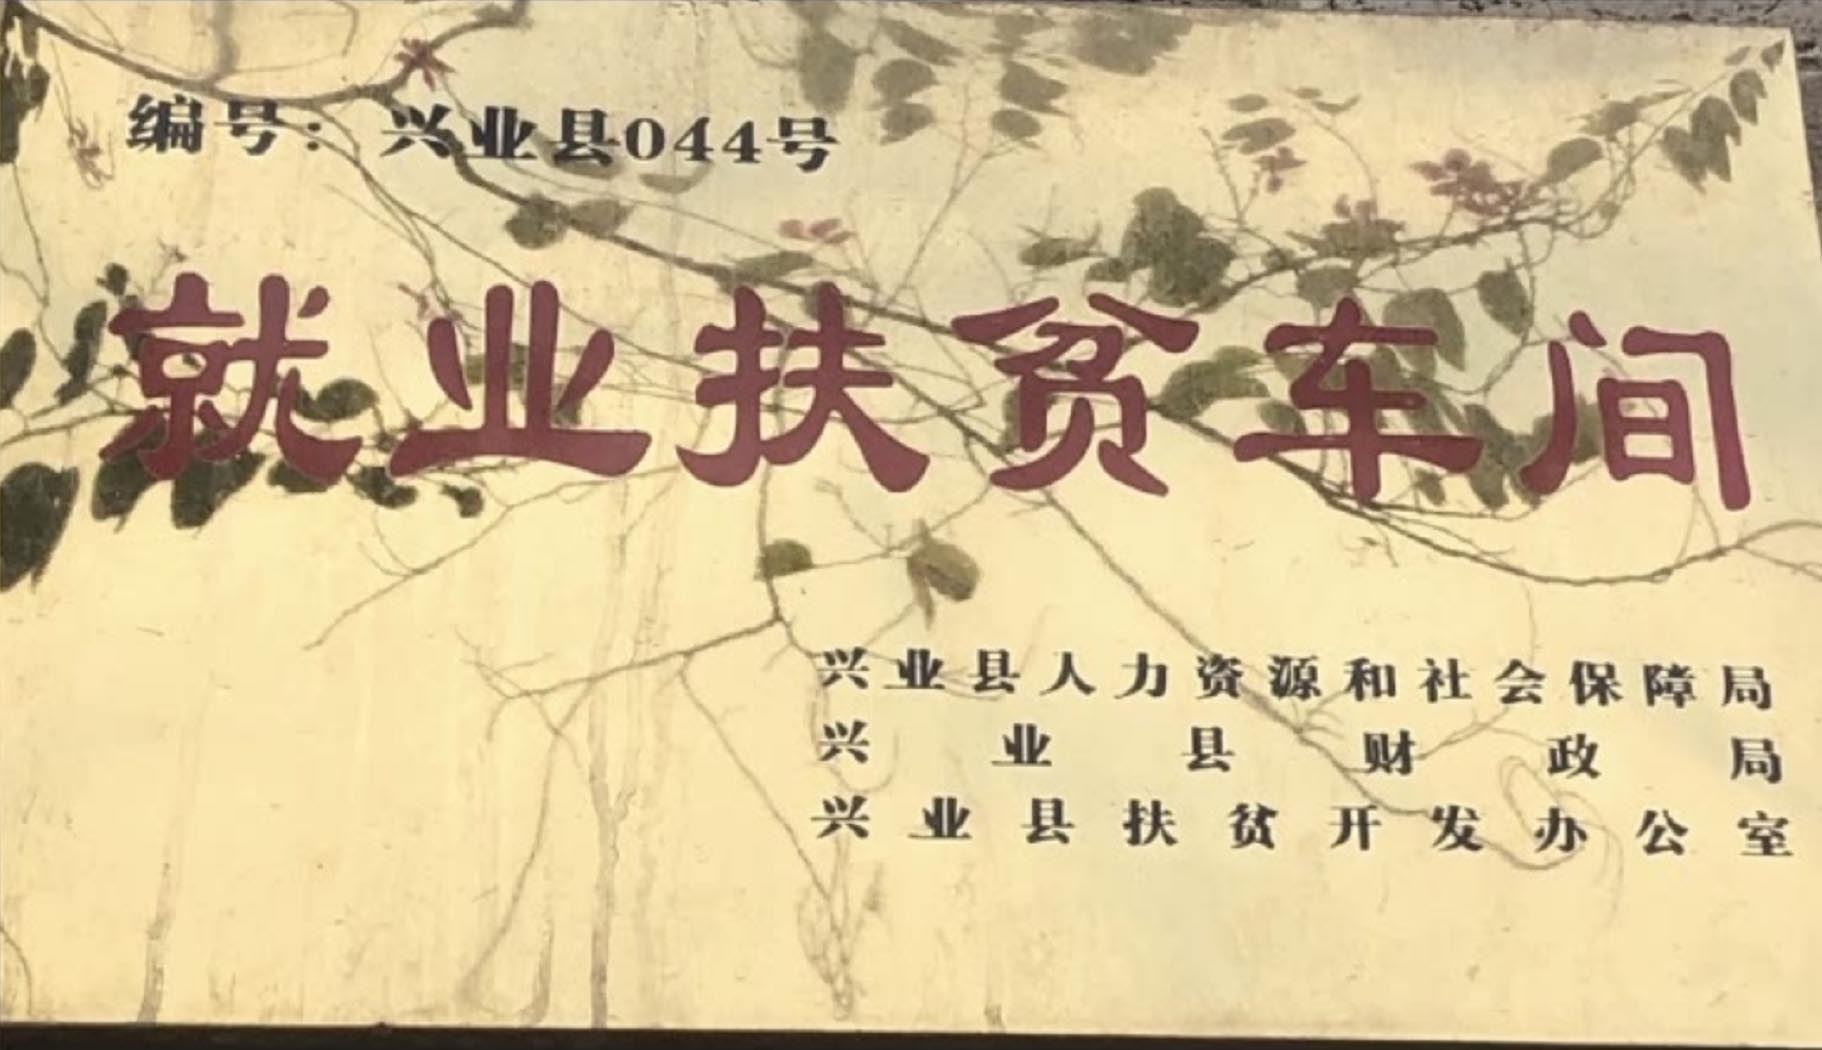 编号：兴业县044号
就业扶贫车间
兴业县人力资源和社会保障局
兴业县财政局
兴业县扶贫开发办公室